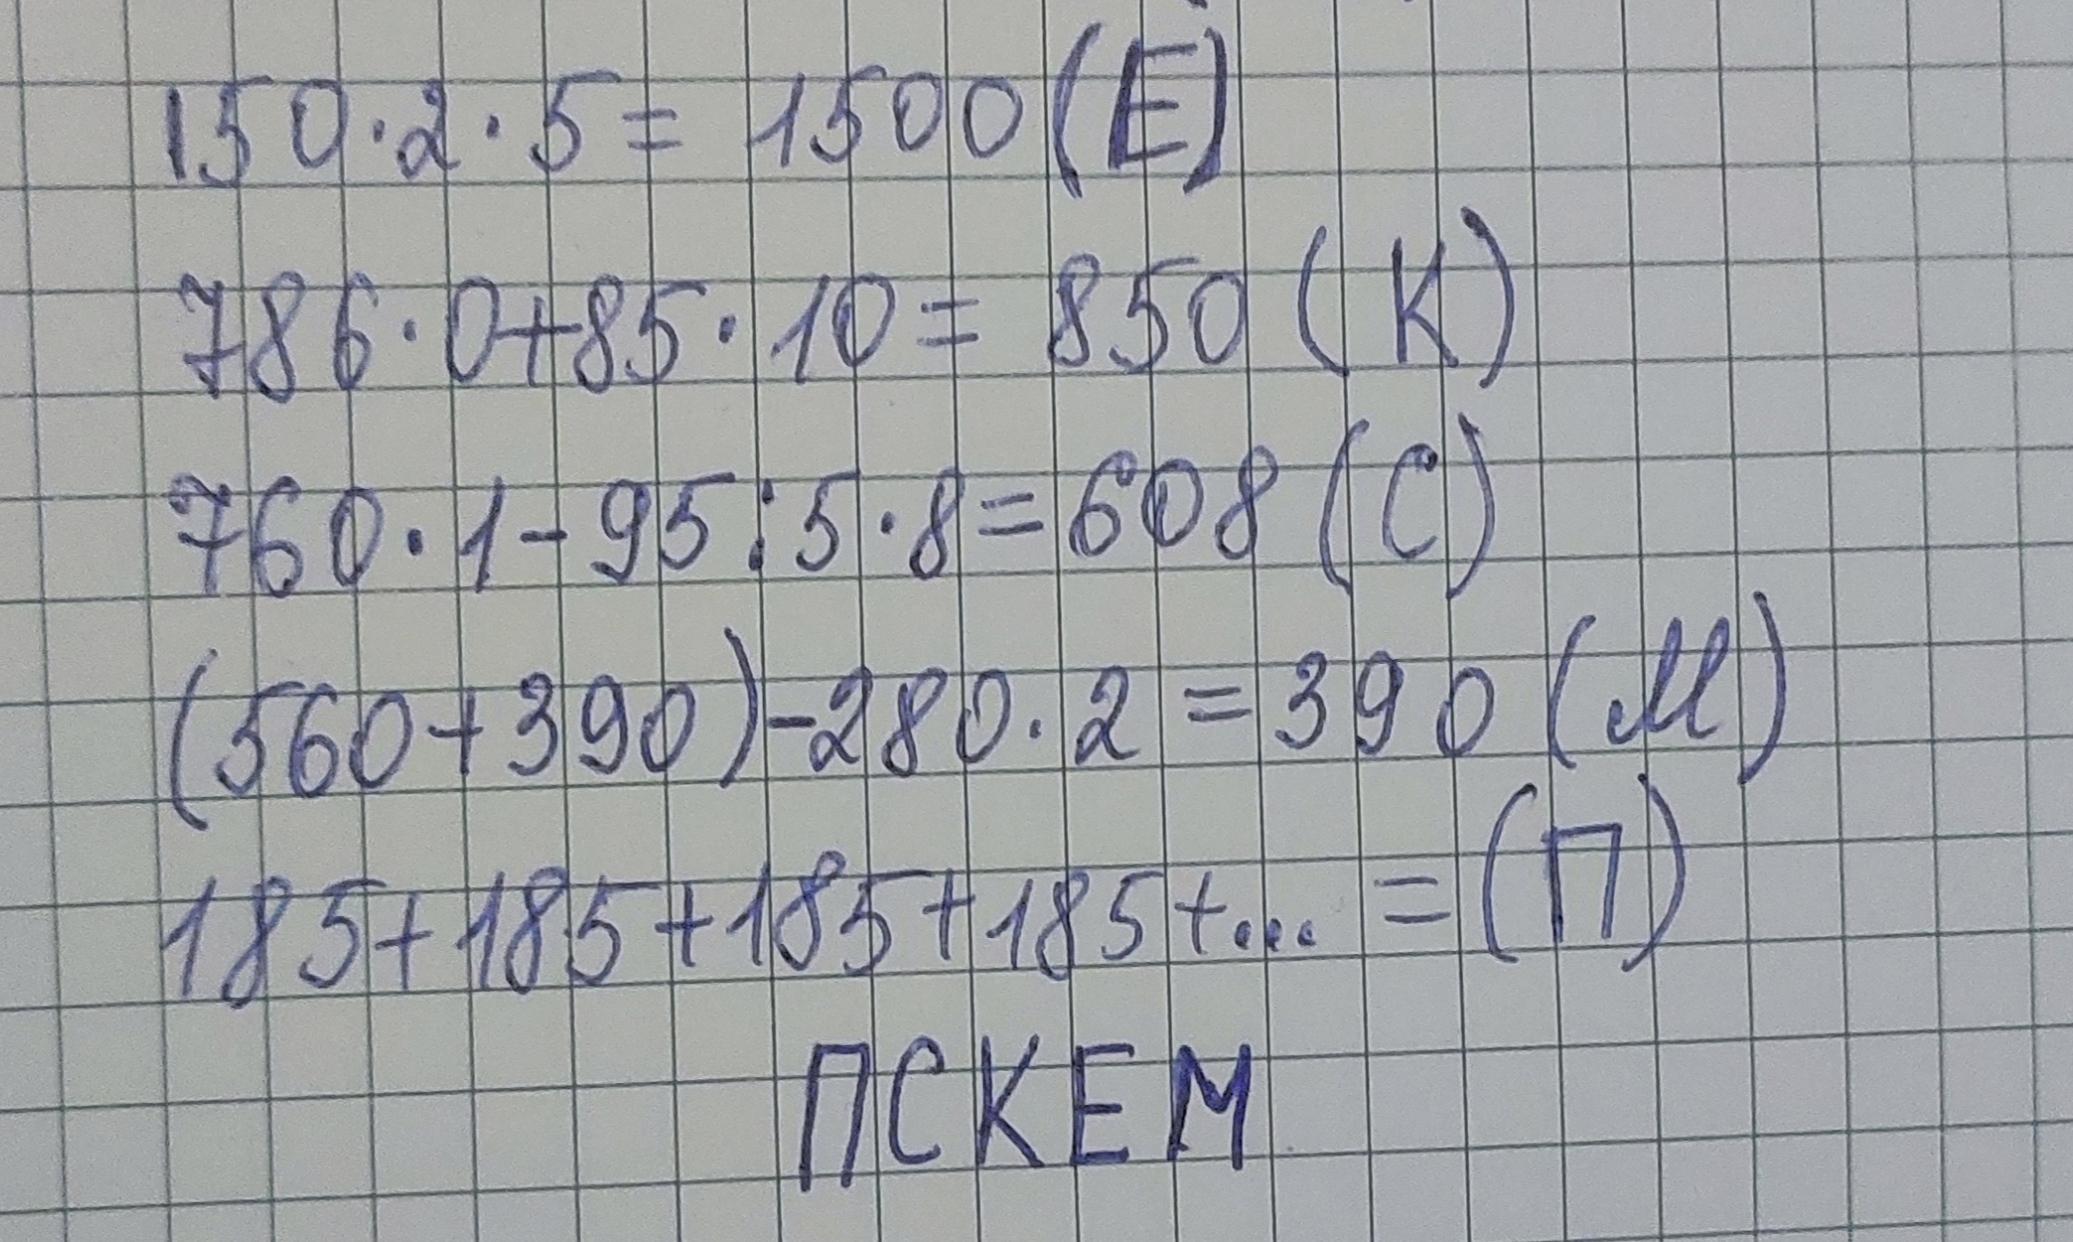 150·2·5= 1500 (Е)
786·0+85·10= 850 (К)
760·1-95:5·8=608 (С)
(560+390)-280·2=390 (М)
185+185+185+185+... =(П)
ПСКЕМ